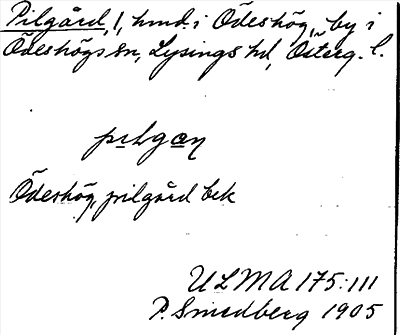 Pilgård, 1, hmd. i Ödeshög, by i
Ödeshögs sn, Lysings hd, Österg. l.
Ödeshög, pilgård bek
ULMA 175:111
P. Smedberg 1905